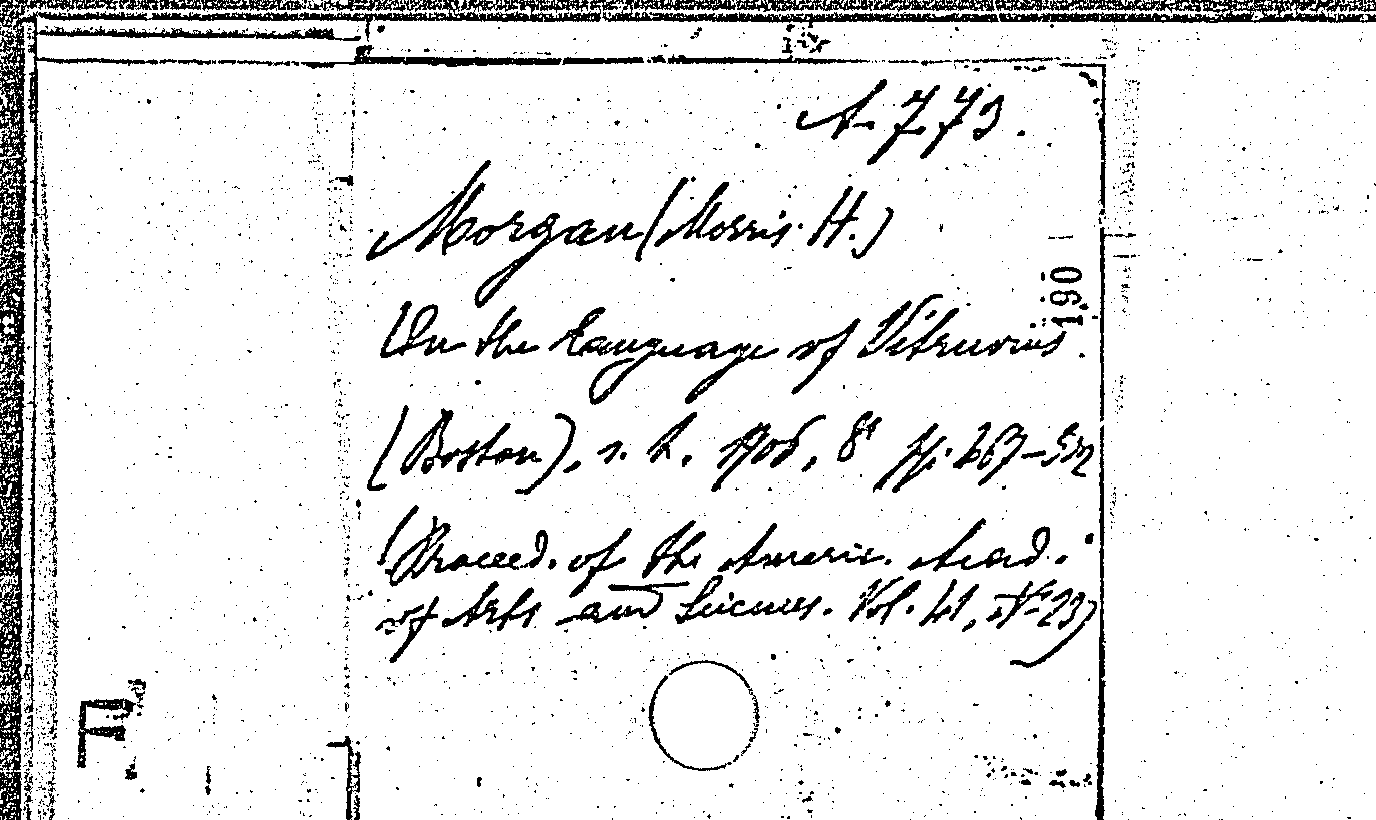 A. 773.
Morgan (Morris H.)
190
On the Language of Vitruvius.
(Boston), 1906, 8° pp. 467-502
(Proceed. of the Americ. Acad.
of Arts and Sciences. Vol. 41, N° 23)